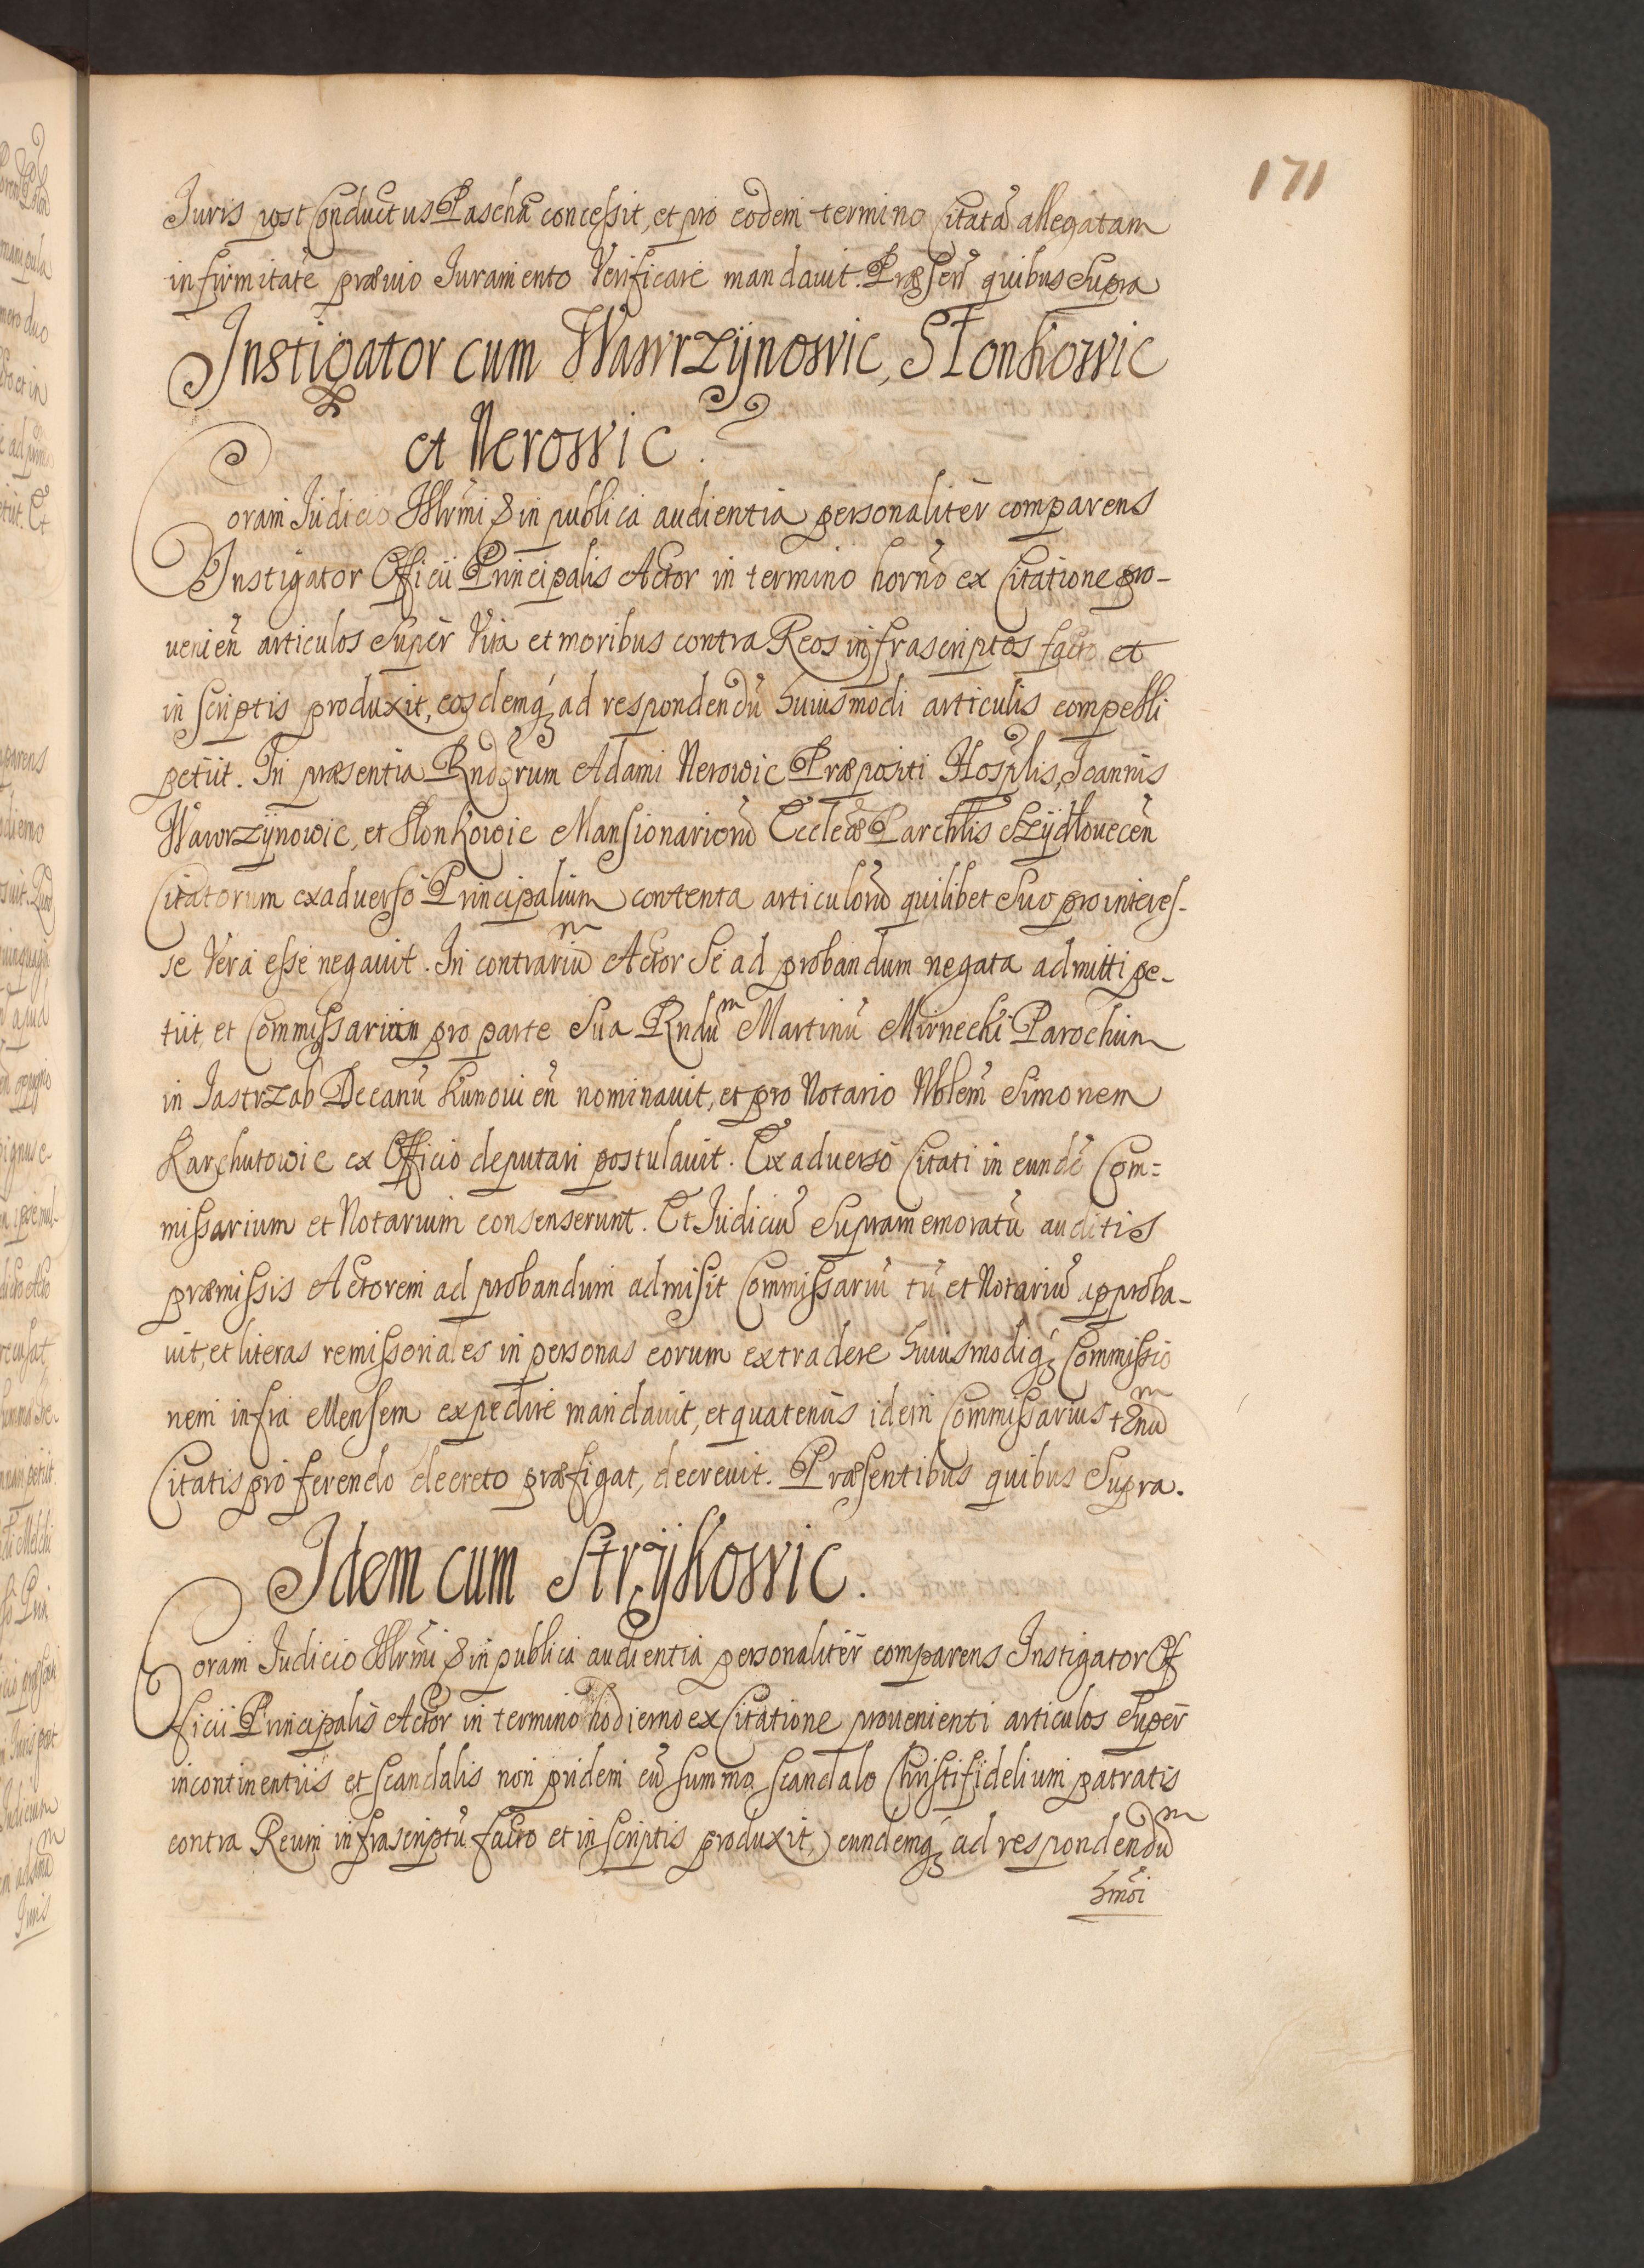 171
Juris post Conductus Paschã concessit, et pro eodem termino Citatã allegatam
infirmitatẽ prævio Juramento Verificare mandavit. Præsen̄ quibus Supra
Instigator cum Wawrzÿnowic, Słonkowic
et Nerowic.
Coram Judicio Illr̃mi & in publica audientia personaliter comparens
Instigator Officii Principalis Actor in termino horño ex Citatione pro-
venien̄ articulos Super Vita et moribus contra Reos infrascriptos facto et
in scriptis produxit, eosdemq; ad respondendũ huiusmodi articulis compelli
petiit. In præsentia Rndorum Adami Nerowic Præpositi Hosp̃lis, Joannis
Wawrzÿnowic, et Słonkowic Mansionariorũ Eccleæ Parchlis Szÿdłovecen̄
Citatorum exadversò Principalium contenta articulorũ quilibet Suo pro interes-
se Vera esse negavit. In contrariũ Actor Se ad probandum negata admitti pe-
tiit, et Commissarium pro parte Sua Rndũm Martinũ Mirnecki Parochum
in Jastrząb Decanũ Kunovien̄ nominavit, et pro Notario Nblem̃ Simonem
Karchutowic ex Officio deputari postulavit. Ex adversò Citati in eundẽ Com=
missarium et Notarium consenserunt. Et Judiciũ Supramemoratũ auditis
præmissis Actorem ad probandum admisit Commissariũ tũ et Notariũ approba-
vit, et literas remissoriales in personas eorum extradere huiusmodiq; Commissio
nem infra Mensem expedire mandavit, et quatenus idem Commissarius tẽnũm
Citatis pro ferendo decreto præfigat, decrevit. Præsentibus quibus Supra.
Idem cum Strÿkowic.
Coram Judicio Illr̃mi & in publica audientia personaliter comparens Instigator Of
ficii Principalis Actor in termino hodierno ex Citatione provenienti articulos Super
incontinentiis et scandalis non pridem cũ summo scandalo Christifidelium patratis
contra Reum infrascriptũ facto et in scriptis produxit, eundemq; ad respondendũm
hmõi